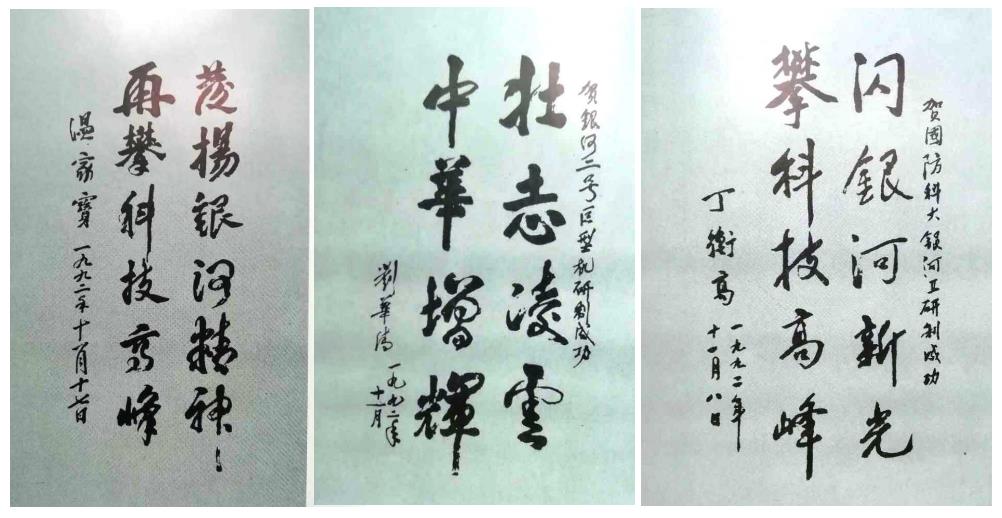 發揚銀河精神
再攀科技高峰
溫家寶 一九九二年十一月十七日
賀銀河二号巨型机研制成功
壮志凌雲
中華增輝
劉華清 一九九二年
十一月
贺國防科大銀河Ⅱ研制成功
闪銀河新光
攀科技高峰
丁衡高 一九九二年
十一月八日